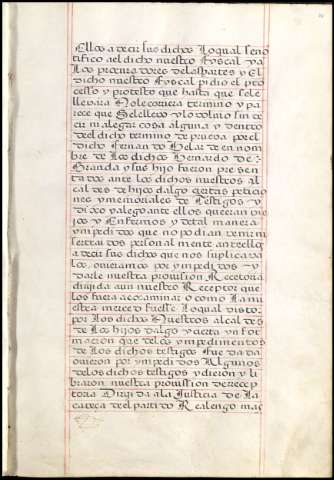 Ellos a decir sus dichos Lo qual se no
tifico a el dicho nuestro Fyscal y a
Los procuradores de las partes y El
dicho nuestro Fyscal pidio el pro
cesso y protesto que hasta que se le
llevara No le corriera termino y pa
rece que se le llevo y lo volvio sin de
cir ni alegar cosa alguna y dentro
del dicho termino de prueva por el
dicho Fernando de en nom
bre de Los dichos Bernardo de
Granda y su hijo fueron presen
tados ante los dichos nuestros al
caldes de hijos dalgo ciertas peticio
nes y memoriales de Testigos y
dixo y alego ante ellos que eran vie
jos y Enfermos y de tal manera
ympedidos que no podian venir ni
ser traidos personalmente ante ellos
a decir sus dichos que nos suplicava
los oviesemos por ympedidos y
darle nuestra provission Recetoria
dirigida a un nuestro Receptor que
los fuera a examinar o como La nu
estra merced fuesse Lo qual visto
por Los dichos Nuestros alcaldes
de Los hijos dalgo y cierta ynfor
macion que de los ympedimentos
de Los dichos testigos fue dada
ovieron por ympedidos Algunos
de los dichos testigos y dieron y li
braron nuestra provission de recep
toria Dirigida a la Justicia de La
caveça de el partido Realengo mas